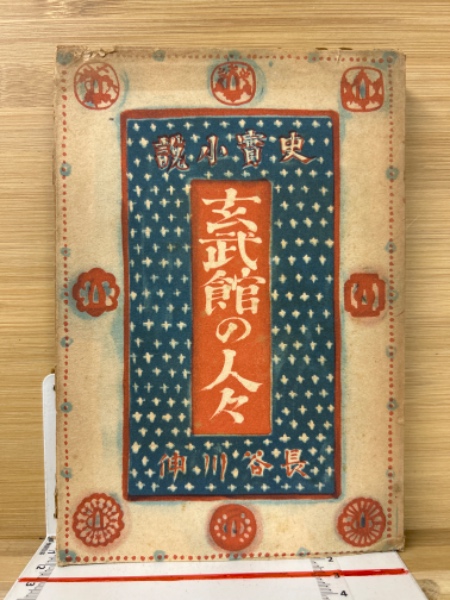 史實小説
玄武館の人々
長谷川伸